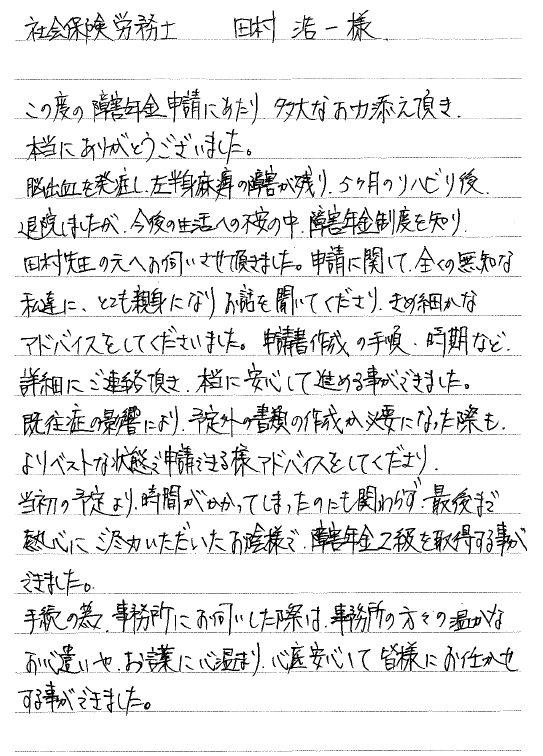 社会保険労務士　田村 浩一様
この度の障害年金申請にあたり 多大なお力添え頂き、
本当にありがとうございました。
脳出血を発症し、左半身麻痺の障害が残り、5ヶ月のリハビリ後、
退院しましたが、今後の生活への不安の中、障害年金制度を知り、
田村先生の元へお伺いさせて頂きました。申請に関して、全くの無知な
私達に、とても親身になり お話を聞いてくださり、きめ細かな
アドバイスをしてくださいました。申請書作成の手順、時期など、
詳細にご連絡頂き、本当に安心して進める事ができました。
既往症の影響により、予定外の書類の作成が必要になった際も、
よりベストな状態で申請できる様アドバイスをしてくださり、
当初の予定より、時間がかかってしまったのにも関わらず、最後まで
熱心にご尽力いただいたお陰様で、障害年金2級を取得する事が
できました。
手続の為、事務所にお伺いした際は、事務所の方々の温かな
お心遣いや、お言葉に心温まり、心底安心して皆様にお任かせ
する事ができました。